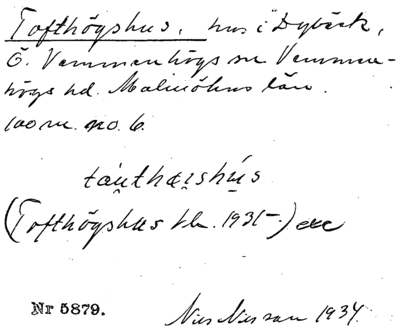 Tofthögshus, hus i Dybäck,
Ö. Vemmenhögs sn Vemmen-
högs hd. Malmöhus län.
100 m. no. 6.
(Tofthögshus tln. 1931-)
Nr 5879. Nils Nilsson 1934